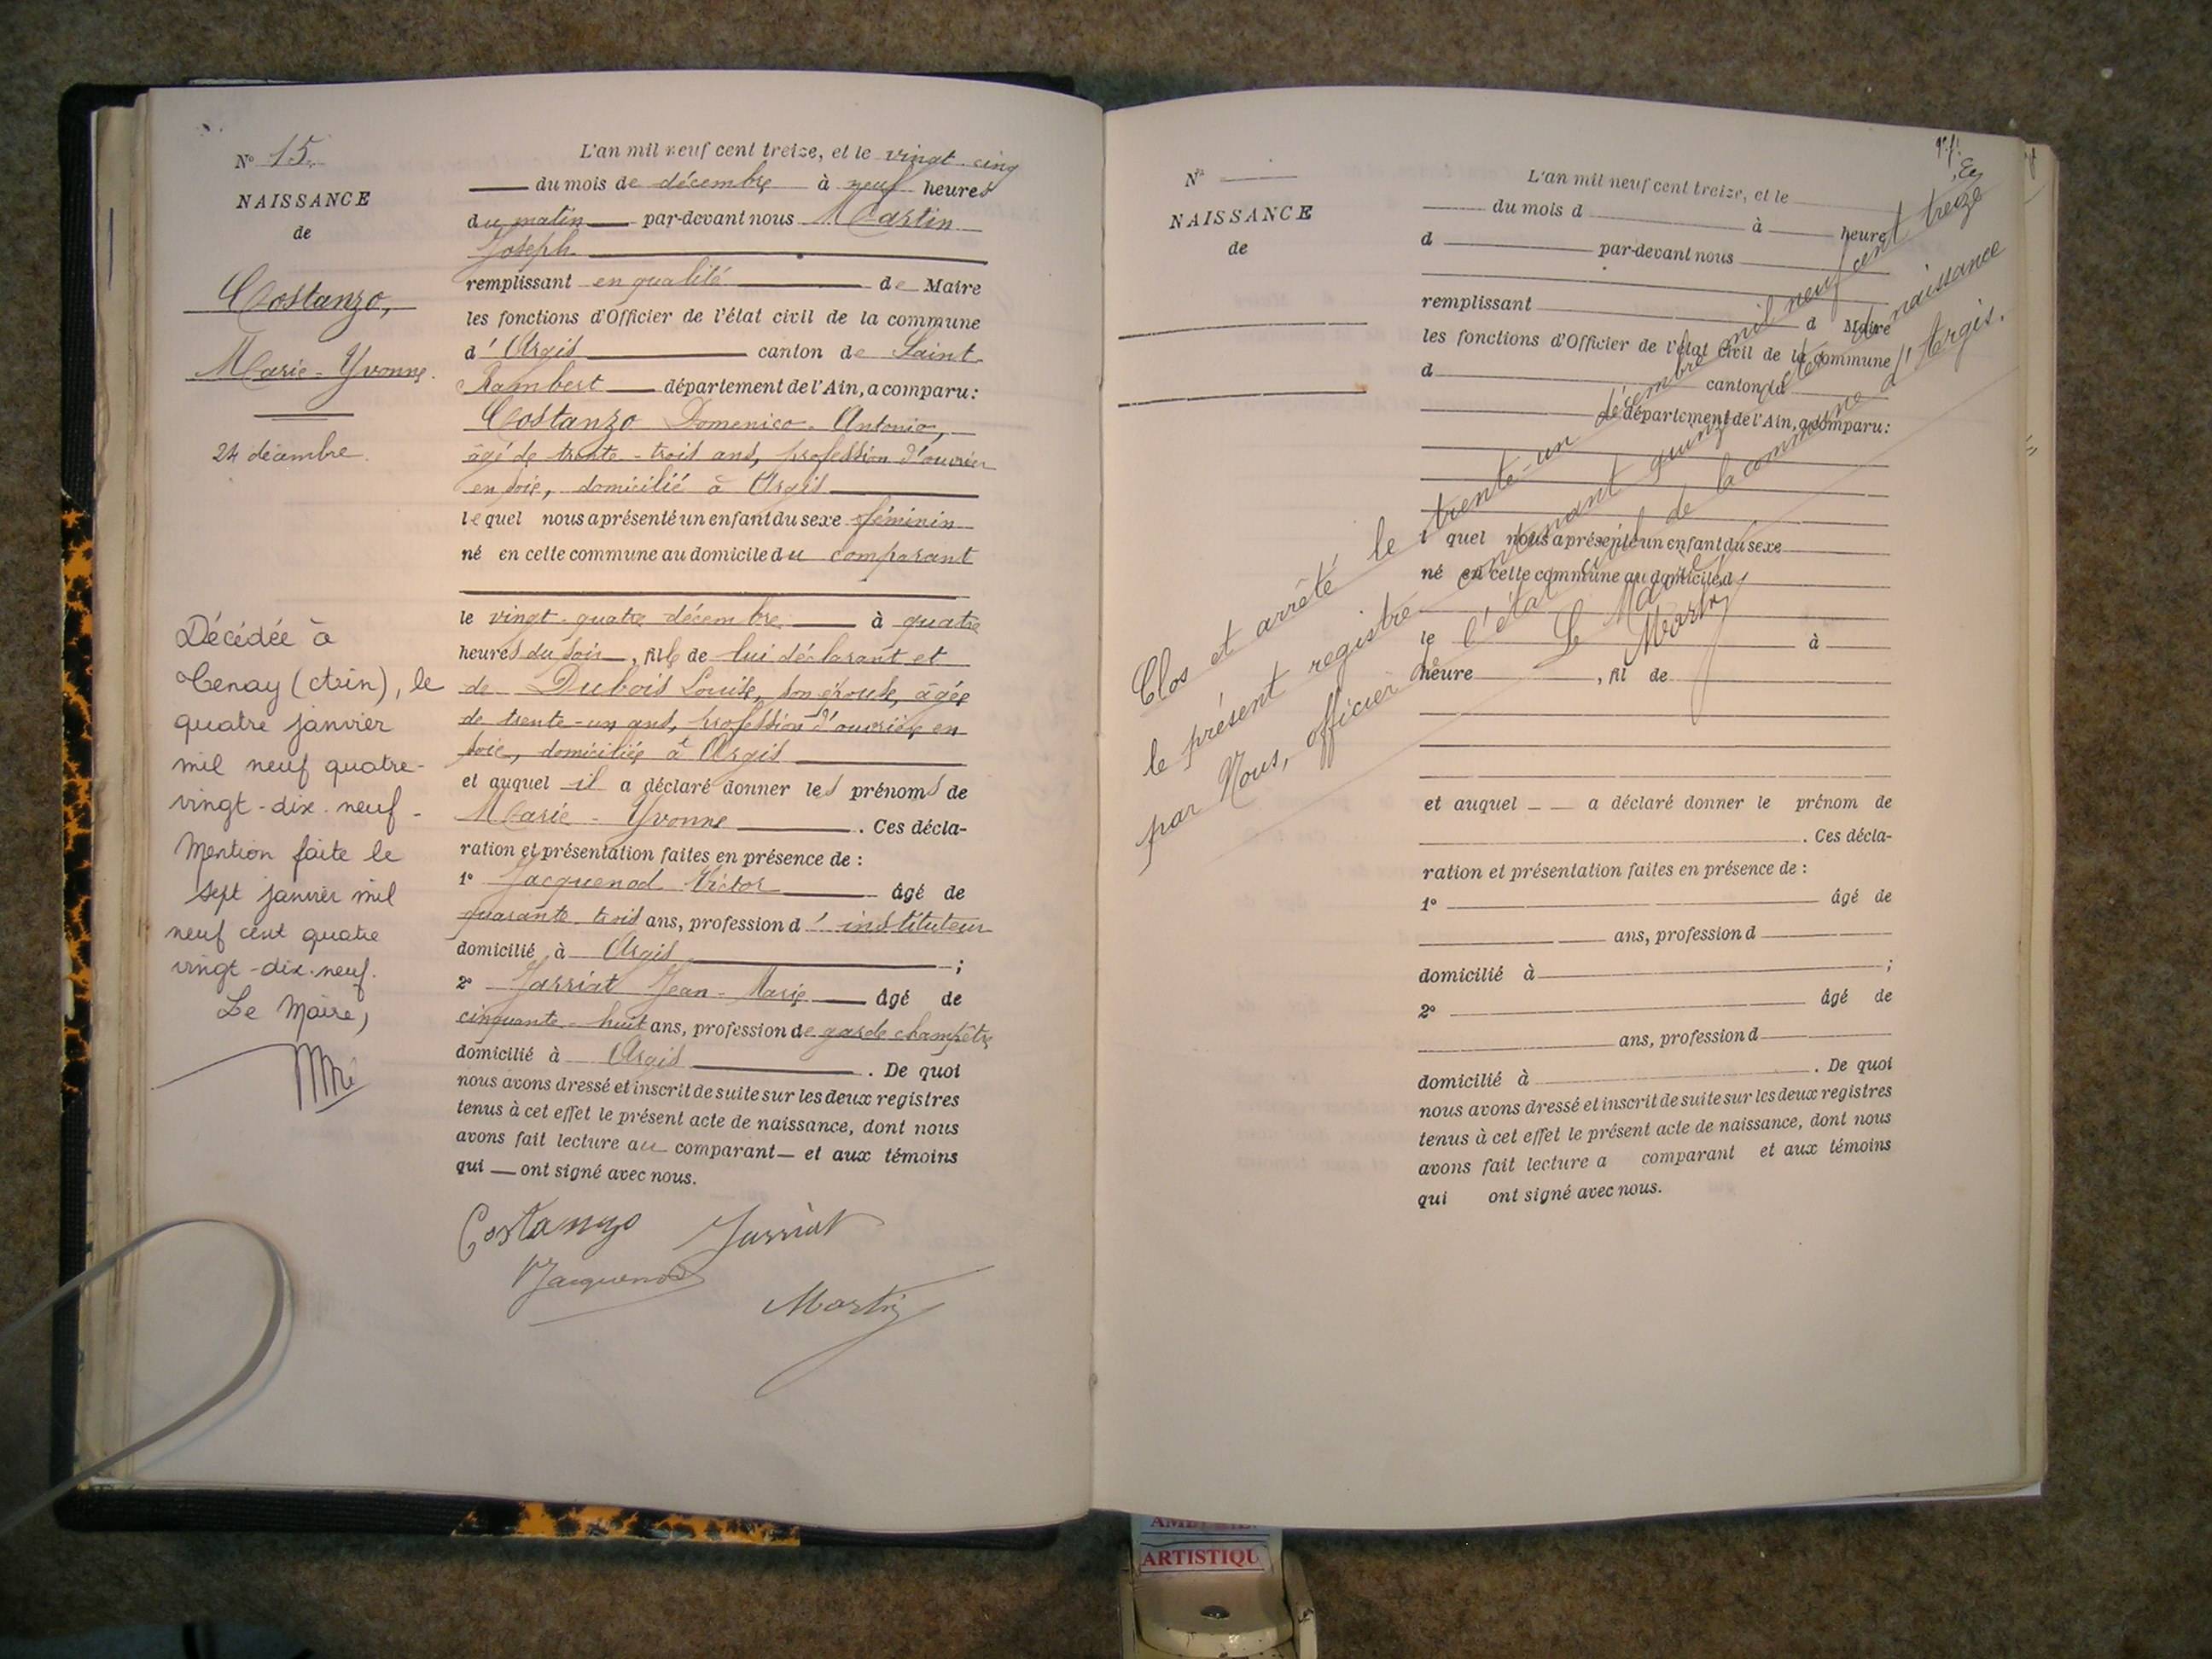 N° 15.
NAISSANCE
de
Costanzo,
Marie-Yvonne.
24 décembre.
Décédée à
Tenay (Ain), le
quatre janvier
mil neuf quatre-
vingt-dix-neuf-
Mention faite le
sept janvier mil
neuf cent quatre
vingt-dix-neuf.
Le Maire,
L'an mil neuf cent treize, et le vingt-cinq
du mois de décembre à neuf heures
du matin par-devant nous Martin
Joseph
remplissant en qualité de Maire
les fonctions d'Officier de l'état civil de la commune
d'Argis canton de Saint-
Rambert département de l'Ain, a comparu:
Costanzo Domenico-Antonio,
âgé de trente-trois ans, profession d'ouvrier
en soie, domicilié à Argis
lequel nous a présenté un enfant du sexe féminin
né en cette commune au domicile du comparant
le vingt-quatre décembre à quatre
heures du soir, fille de lui déclarant et
de Dubois Louise, son épouse, âgée
de trente-un ans, profession d'ouvrière en
soie, domiciliée à Argis
et auquel il a déclaré donner les prénoms de
Marie-Yvonne. Ces décla-
ration et présentation faites en présence de :
1° Jacquenod Victor âgé de
quarante-trois ans, profession d'instituteur
domicilié à Argis ;
2° Jarriat Jean-Marie âgé de
cinquante-huit ans, profession de garde champêtre
domicilié à Argis. De quoi
nous avons dressé et inscrit de suite sur les deux registres
tenus à cet effet le présent acte de naissance, dont nous
avons fait lecture au comparant et aux témoins
qui ont signé avec nous.
Costanzo Jarriat
VJacquenod
Martin
N°
NAISSANCE
de
L'an mil neuf cent treize, et le
du mois d à heure
d par-devant nous
remplissant d Maire
les fonctions d'Officier de l'état civil de la commune
d canton d
département de l'Ain, a comparu:
l quel nous a présenté un enfant du sexe
né en cette commune au domicile d
le à
heure , fil de
et auquel a déclaré donner le prénom de
. Ces décla-
ration et présentation faites en présence de :
1° âgé de
ans, profession d
domicilié à ;
2° âgé de
ans, profession d
domicilié à . De quoi
nous avons dressé et inscrit de suite sur les deux registres
tenus à cet effet le présent acte de naissance, dont nous
avons fait lecture a comparant et aux témoins
qui ont signé avec nous.
Clos et arrêté le trente-un décembre mil neuf cent treize
le présent registre contenant quinze actes de naissance
par Nous, officier de l'état civil de la commune d'Argis.
Le Maire
Martin
ARTISTIQU